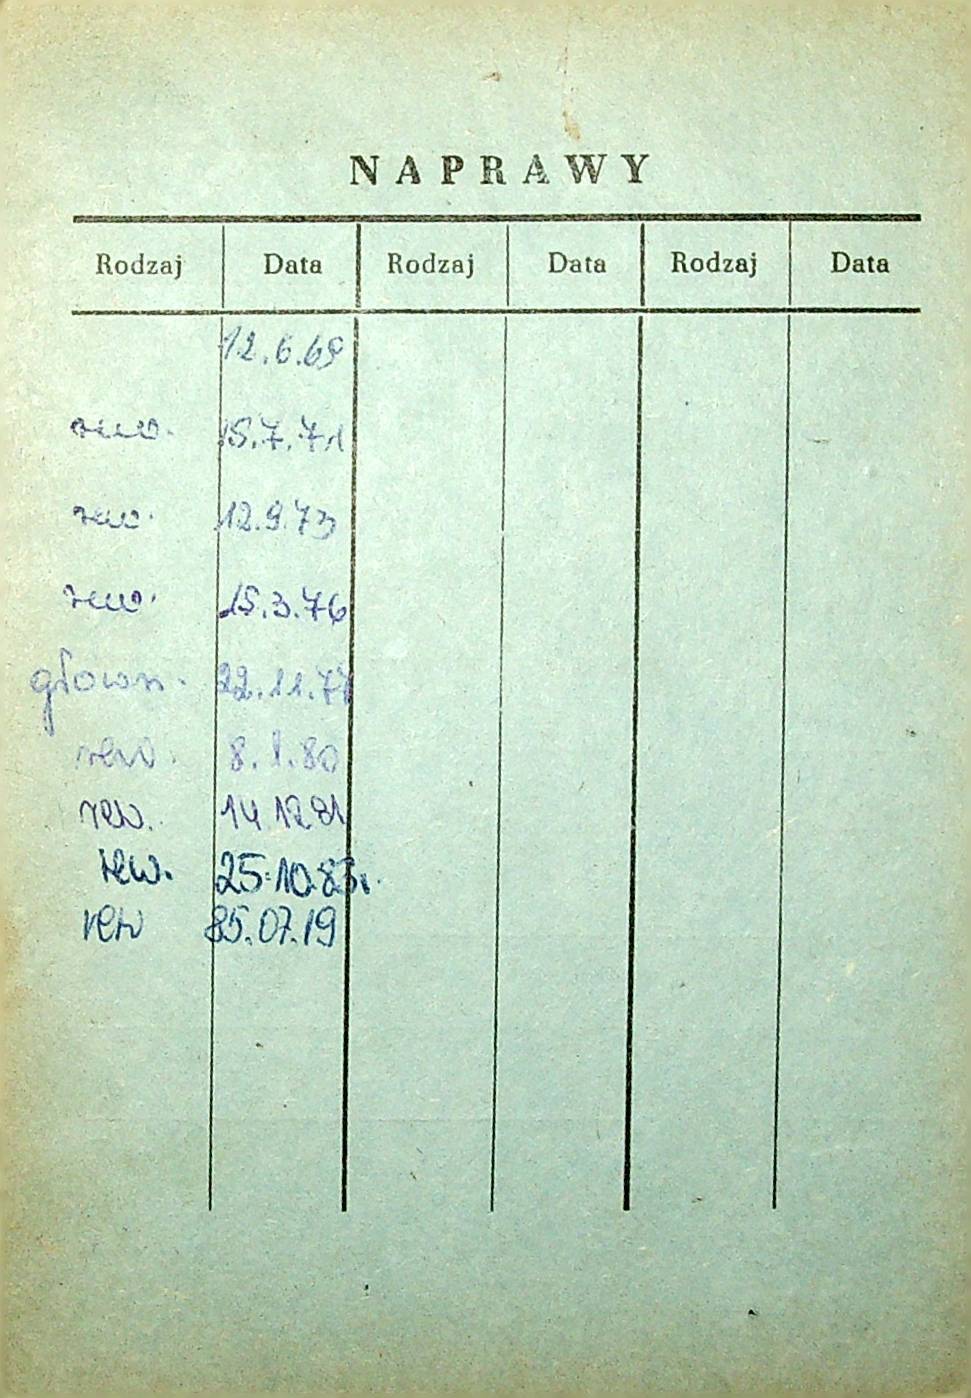 NAPRAWY
Rodzaj Data Rodzaj Data Rodzaj Data
12.6.69
rew. 15.7.71
rew. 12.9.73
rew. 15.3.76
główn. 22.11.77
rew. 8.1.80
rew. 14 12 81
rew. 25.10.83r.
rew 85.07.19